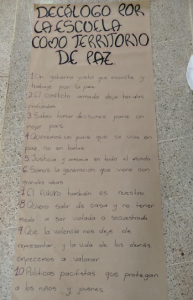 DECÁLOGO POR
LA ESCUELA
COMO TERRITORIO
DE PAZ
1 Un gobierno justo que escuche y
trabaje por la paz
2 El conflicto armado deja heridas
3 Saber tomar decisiones para un
mejor país
4 Queremos un país que se viva en
paz no en balas
5 Justicia y amor en todo el mundo
6 Somos la generación que viene con
7 El futuro también es nuestro
8 Quiero salir de casa y no tener
miedo a ser violada o secuestrada
9 Que la violencia nos deje de
representar, y la vida de los demás
empecemos a valorar
10 Políticas pacifistas que protejan
a los niños y jóvenes